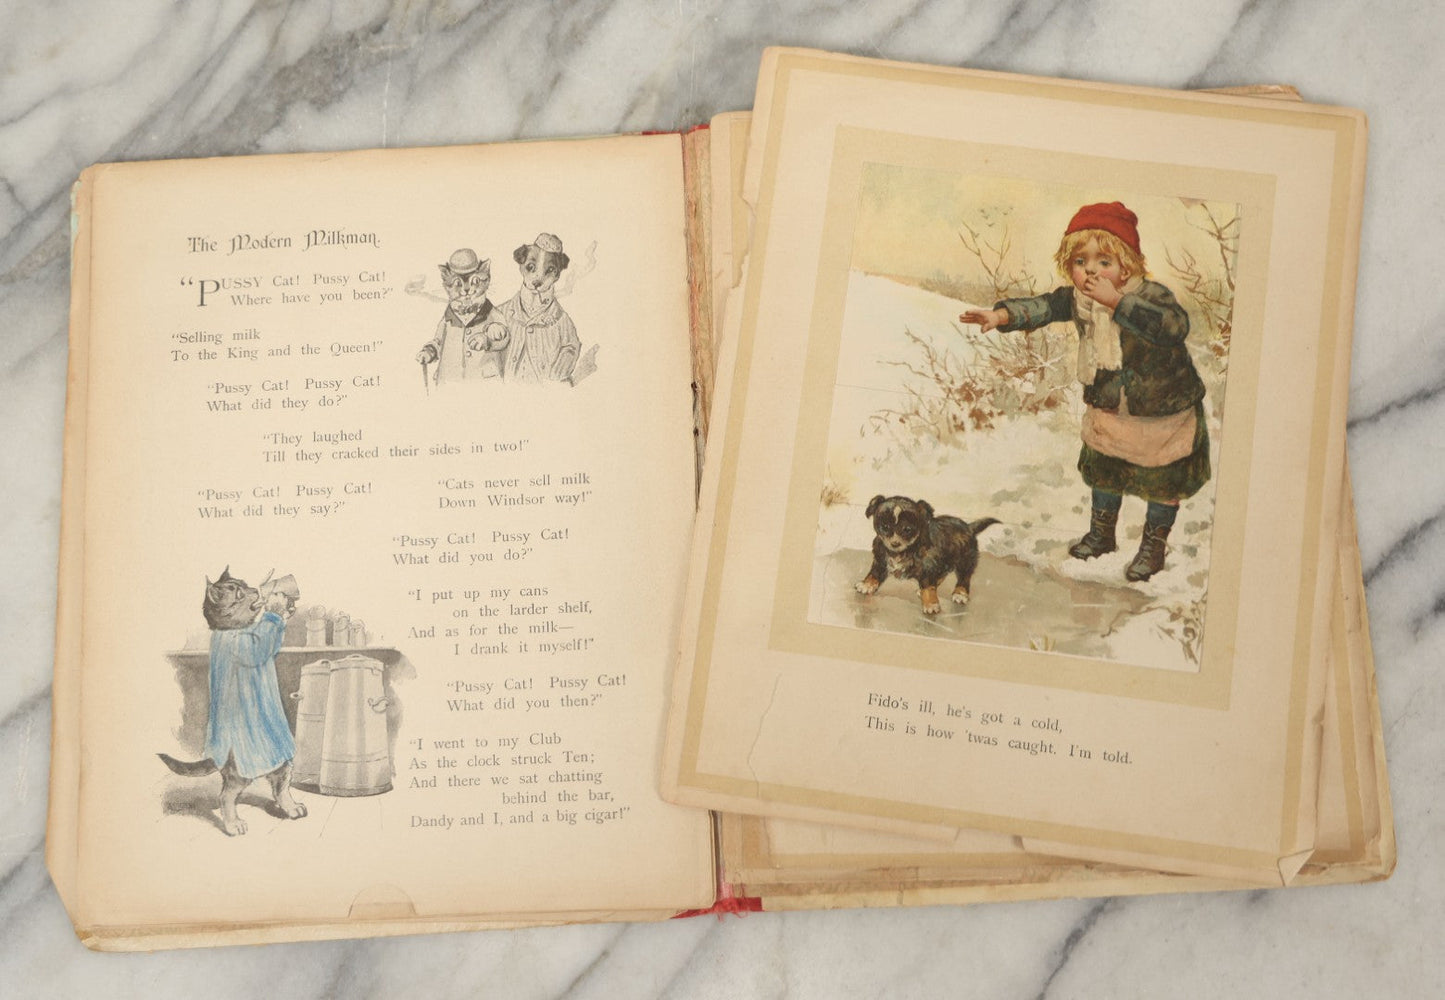 The Modern Milkman.
"PUSSY Cat! Pussy Cat!
Where have you been?"
"Selling milk
To the King and the Queen!"
"Pussy Cat! Pussy Cat!
What did they do?"
"They laughed
Till they cracked their sides in two!"
"Pussy Cat! Pussy Cat!
What did they say?"
"Cats never sell milk
Down Windsor way!"
"Pussy Cat! Pussy Cat!
What did you do?"
"I put up my cans
on the larder shelf,
And as for the milk—
I drank it myself!"
"Pussy Cat! Pussy Cat!
What did you then?"
"I went to my Club
As the clock struck Ten;
And there we sat chatting
behind the bar,
Dandy and I, and a big cigar!"
Fido's ill, he's got a cold,
This is how 'twas caught. I'm told.